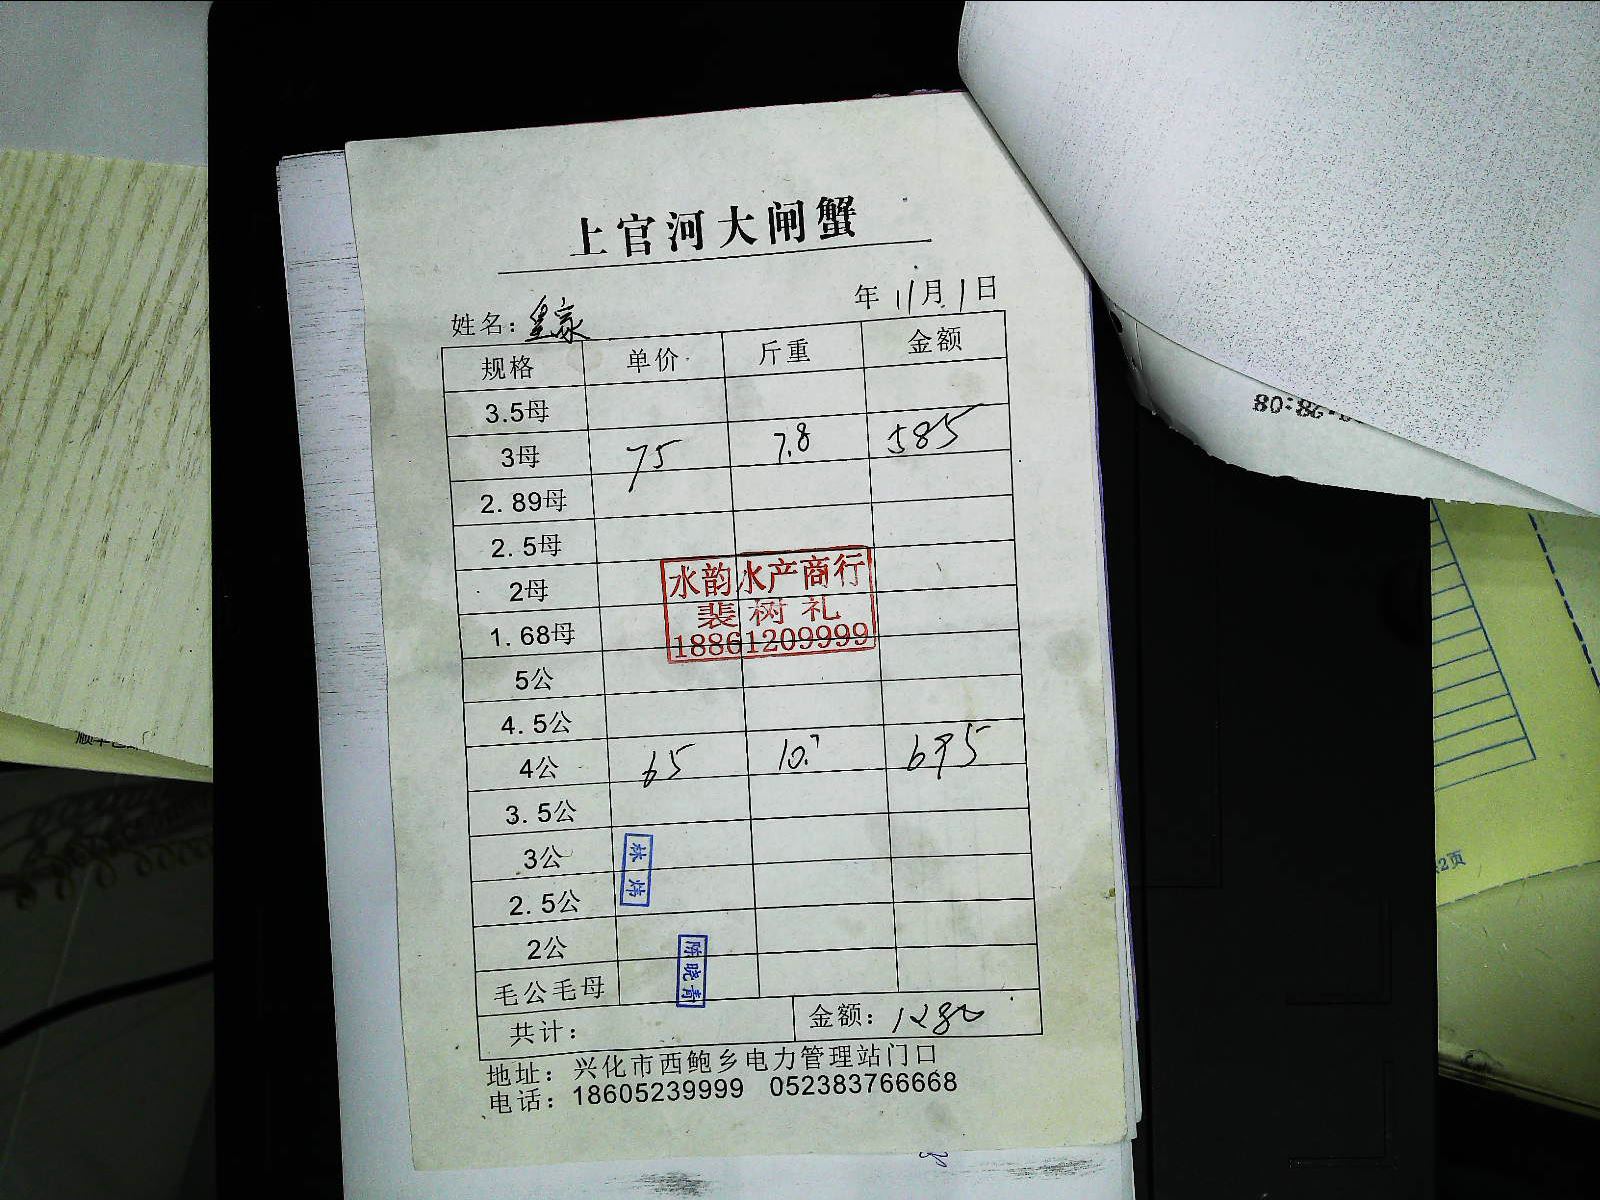 上官河大闸蟹
姓名：皇家 年 11月 1日
规格 单价 斤重 金额
3.5母
3母 75 7.8 585
2.89母
2.5母
2母
1.68母
水韵水产商行
裴树礼
18861209999
5公
4.5公
4公 65 10.7 695
3.5公
3公
林炜
2.5公
2公
陈晓青
毛公毛母
共计： 金额：1280
地址：兴化市西鲍乡电力管理站门口
电话：18605239999 052383766668
28:08
2页